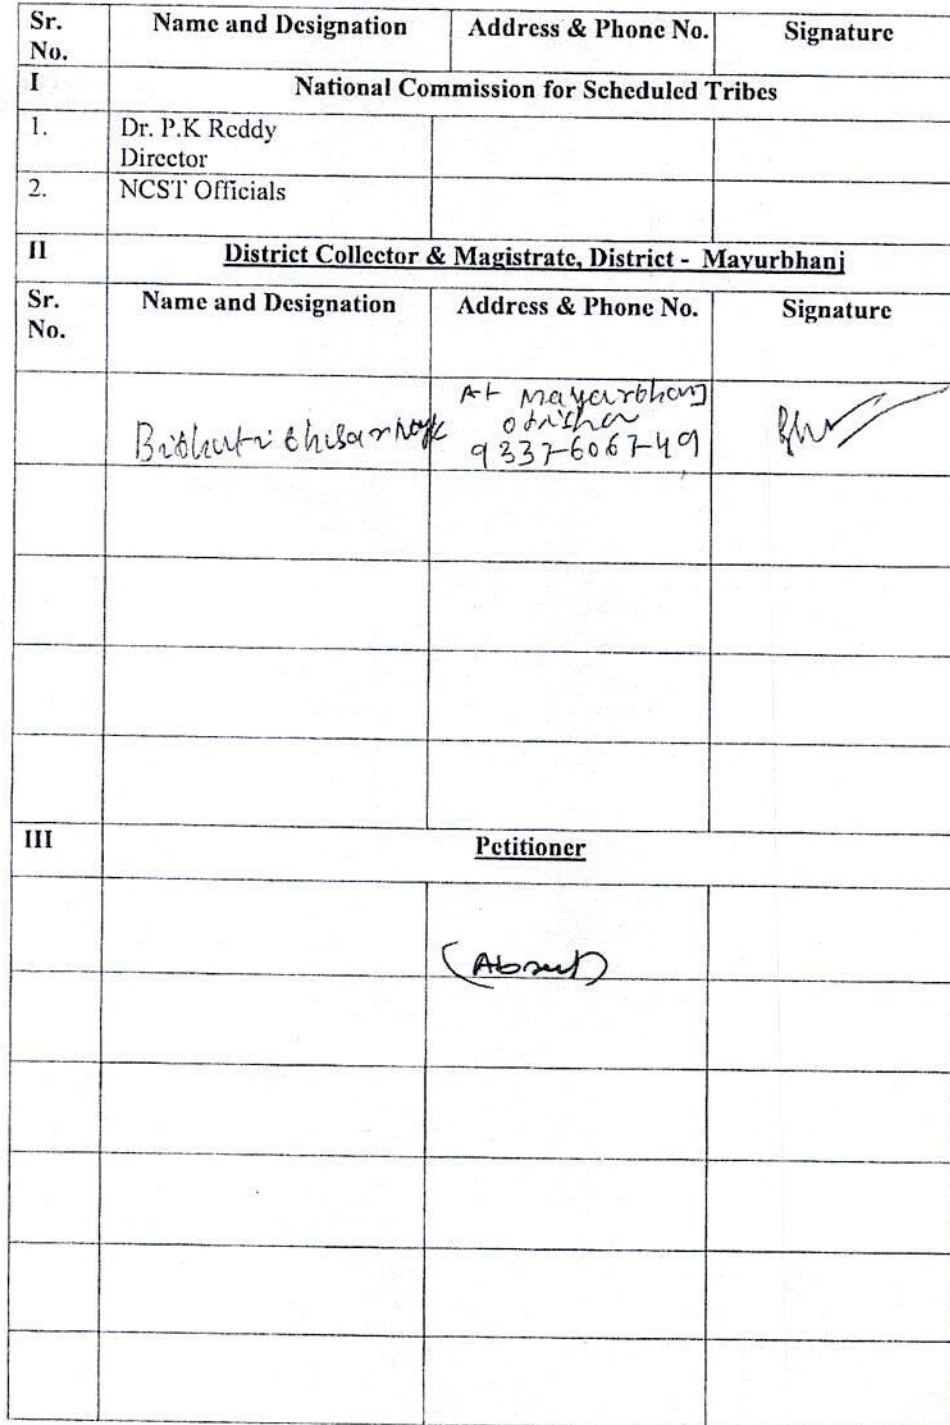 Sr. No. Name and Designation Address & Phone No. Signature
I National Commission for Scheduled Tribes
1. Dr. P.K Reddy
Director
2. NCST Officials
II District Collector & Magistrate, District - Mayurbhanj
Sr. No. Name and Designation Address & Phone No. Signature
At Mayurbhanj
odisha
9337-6067-49
III Petitioner
(Absent)